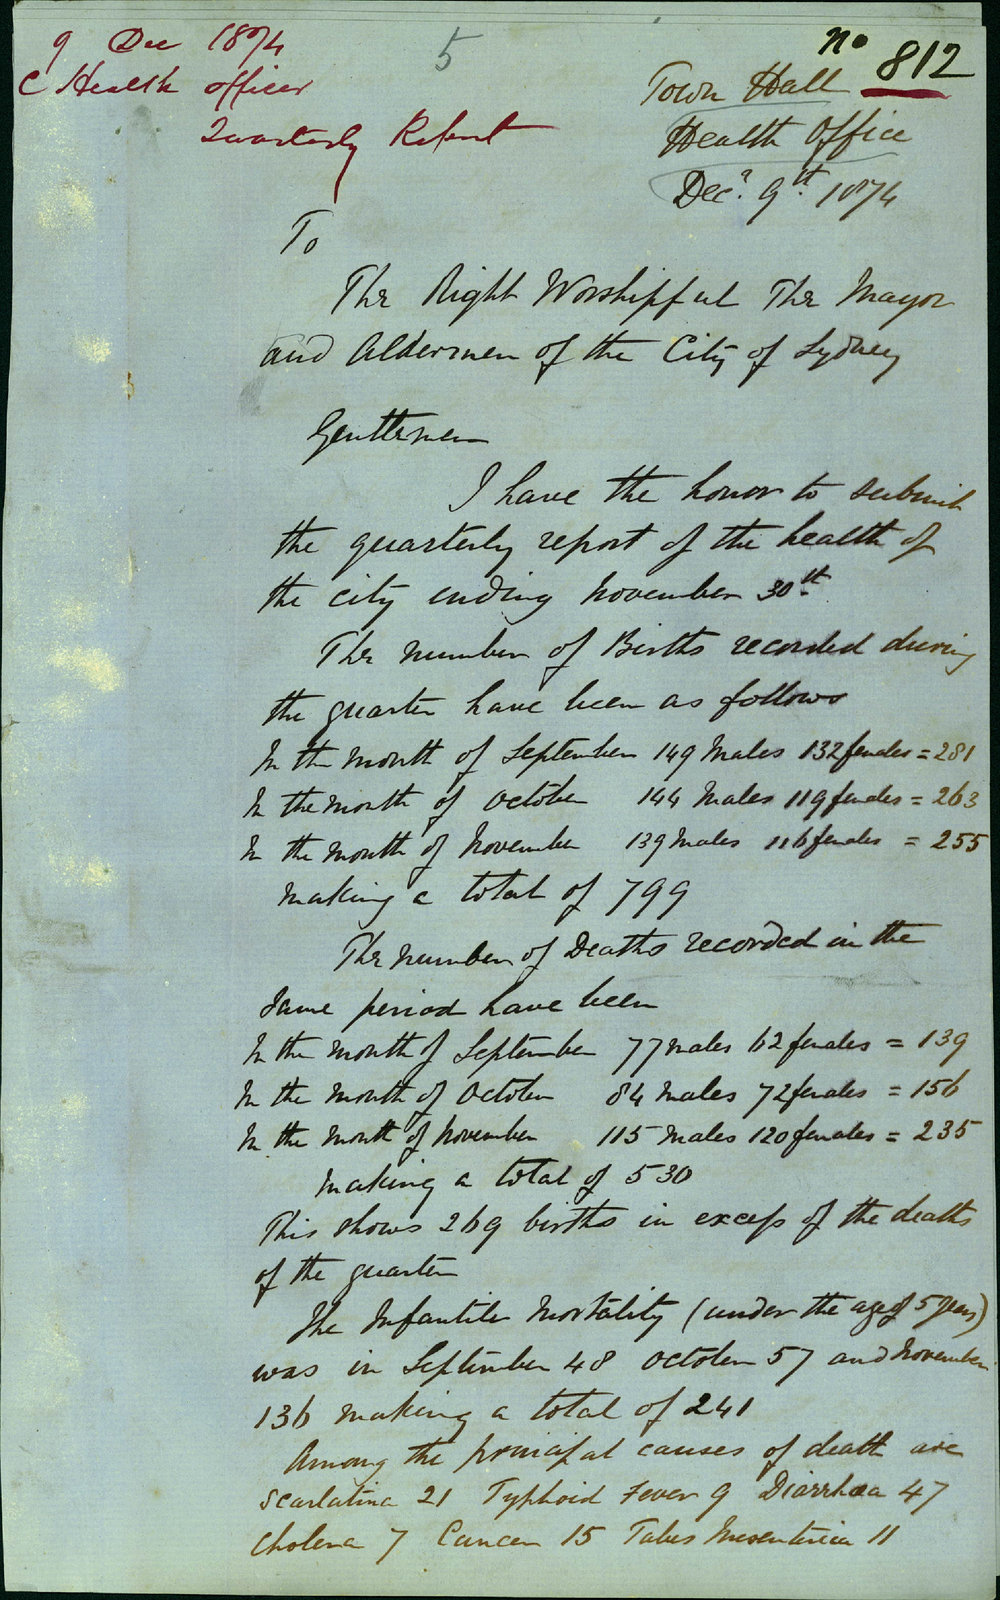 9 Dec 1874
C Health officer
Quarterly Report
5
No 812
Town Hall
Health Office
Decr. 9th. 1874
To
The Right Worshipful The Mayor
and Aldermen of the City of Sydney
Gentlemen
I have the honor to submit
the quarterly report of the health of
the city ending November 30th.
The number of Births recorded during
the quarter have been as follows
In the month of September 149 Males 132 females = 281
In the month of October 144 Males 119 females = 263
In the month of November 139 Males 116 females = 255
Making a total of 799
The number of Deaths recorded in the
same period have been
In the month of September 77 males 62 females = 139
In the month of October 84 Males 72 females = 156
In the month of November 115 Males 120 females = 235
Making a total of 530
This shows 269 births in excess of the deaths
of the quarter
The Infantile Mortality (under the age of 5 years)
was in September 48 October 57 and November
136 making a total of 241
Among the principal causes of death are
Scarlatina 21 Typhoid Fever 9 Diarrhœa 47
Cholera 7 Cancer 15 Tabes Mesenterica 11